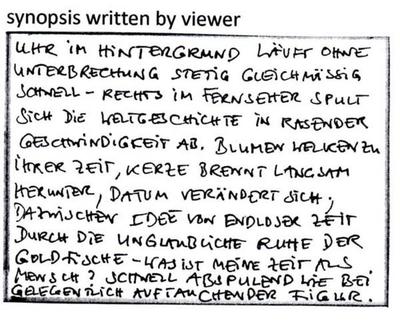 synopsis written by viewer
UHR IM HINTERGRUND LÄUFT OHNE
UNTERBRECHUNG STETIG GLEICHMÄSSIG
SCHNELL – RECHTS IM FERNSEHER SPULT
SICH DIE WELTGESCHICHTE IN RASENDER
GESCHWINDIGKEIT AB. BLUMEN WELKEN ZU
IHRER ZEIT, KERZE BRENNT LANGSAM
HERUNTER, DATUM VERÄNDERT SICH,
DAZWISCHEN IDEE VON ENDLOSER ZEIT
DURCH DIE UNGLAUBLICHE RUHE DER
GOLDFISCHE – WAS IST MEINE ZEIT ALS
MENSCH? SCHNELL ABSPULEND WIE BEI
GELEGENTLICH AUFTAUCHENDER FIGUR.